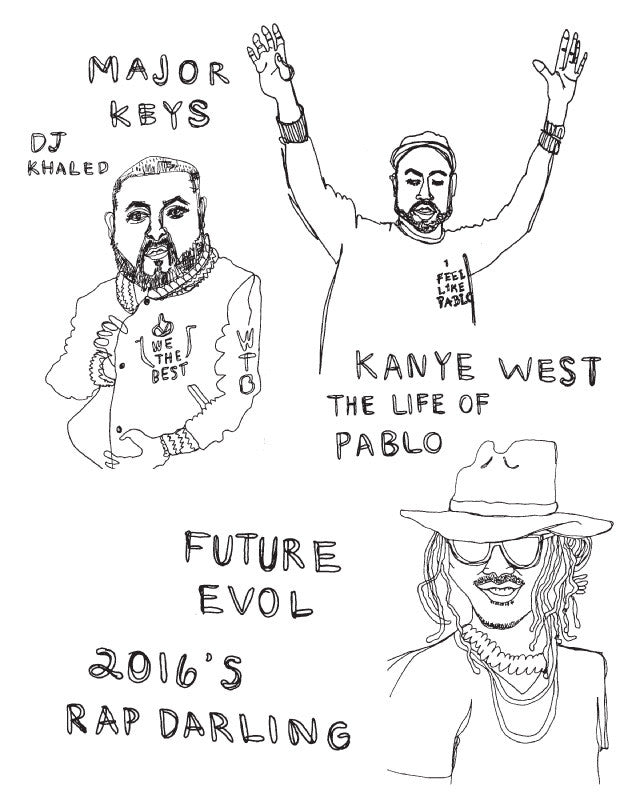 MAJOR
KEYS
DJ
KHALED
WE
THE
BEST
WTB
I
FEEL
LIKE
PABLO
KANYE WEST
THE LIFE OF
PABLO
FUTURE
EVOL
2016'S
RAP DARLING